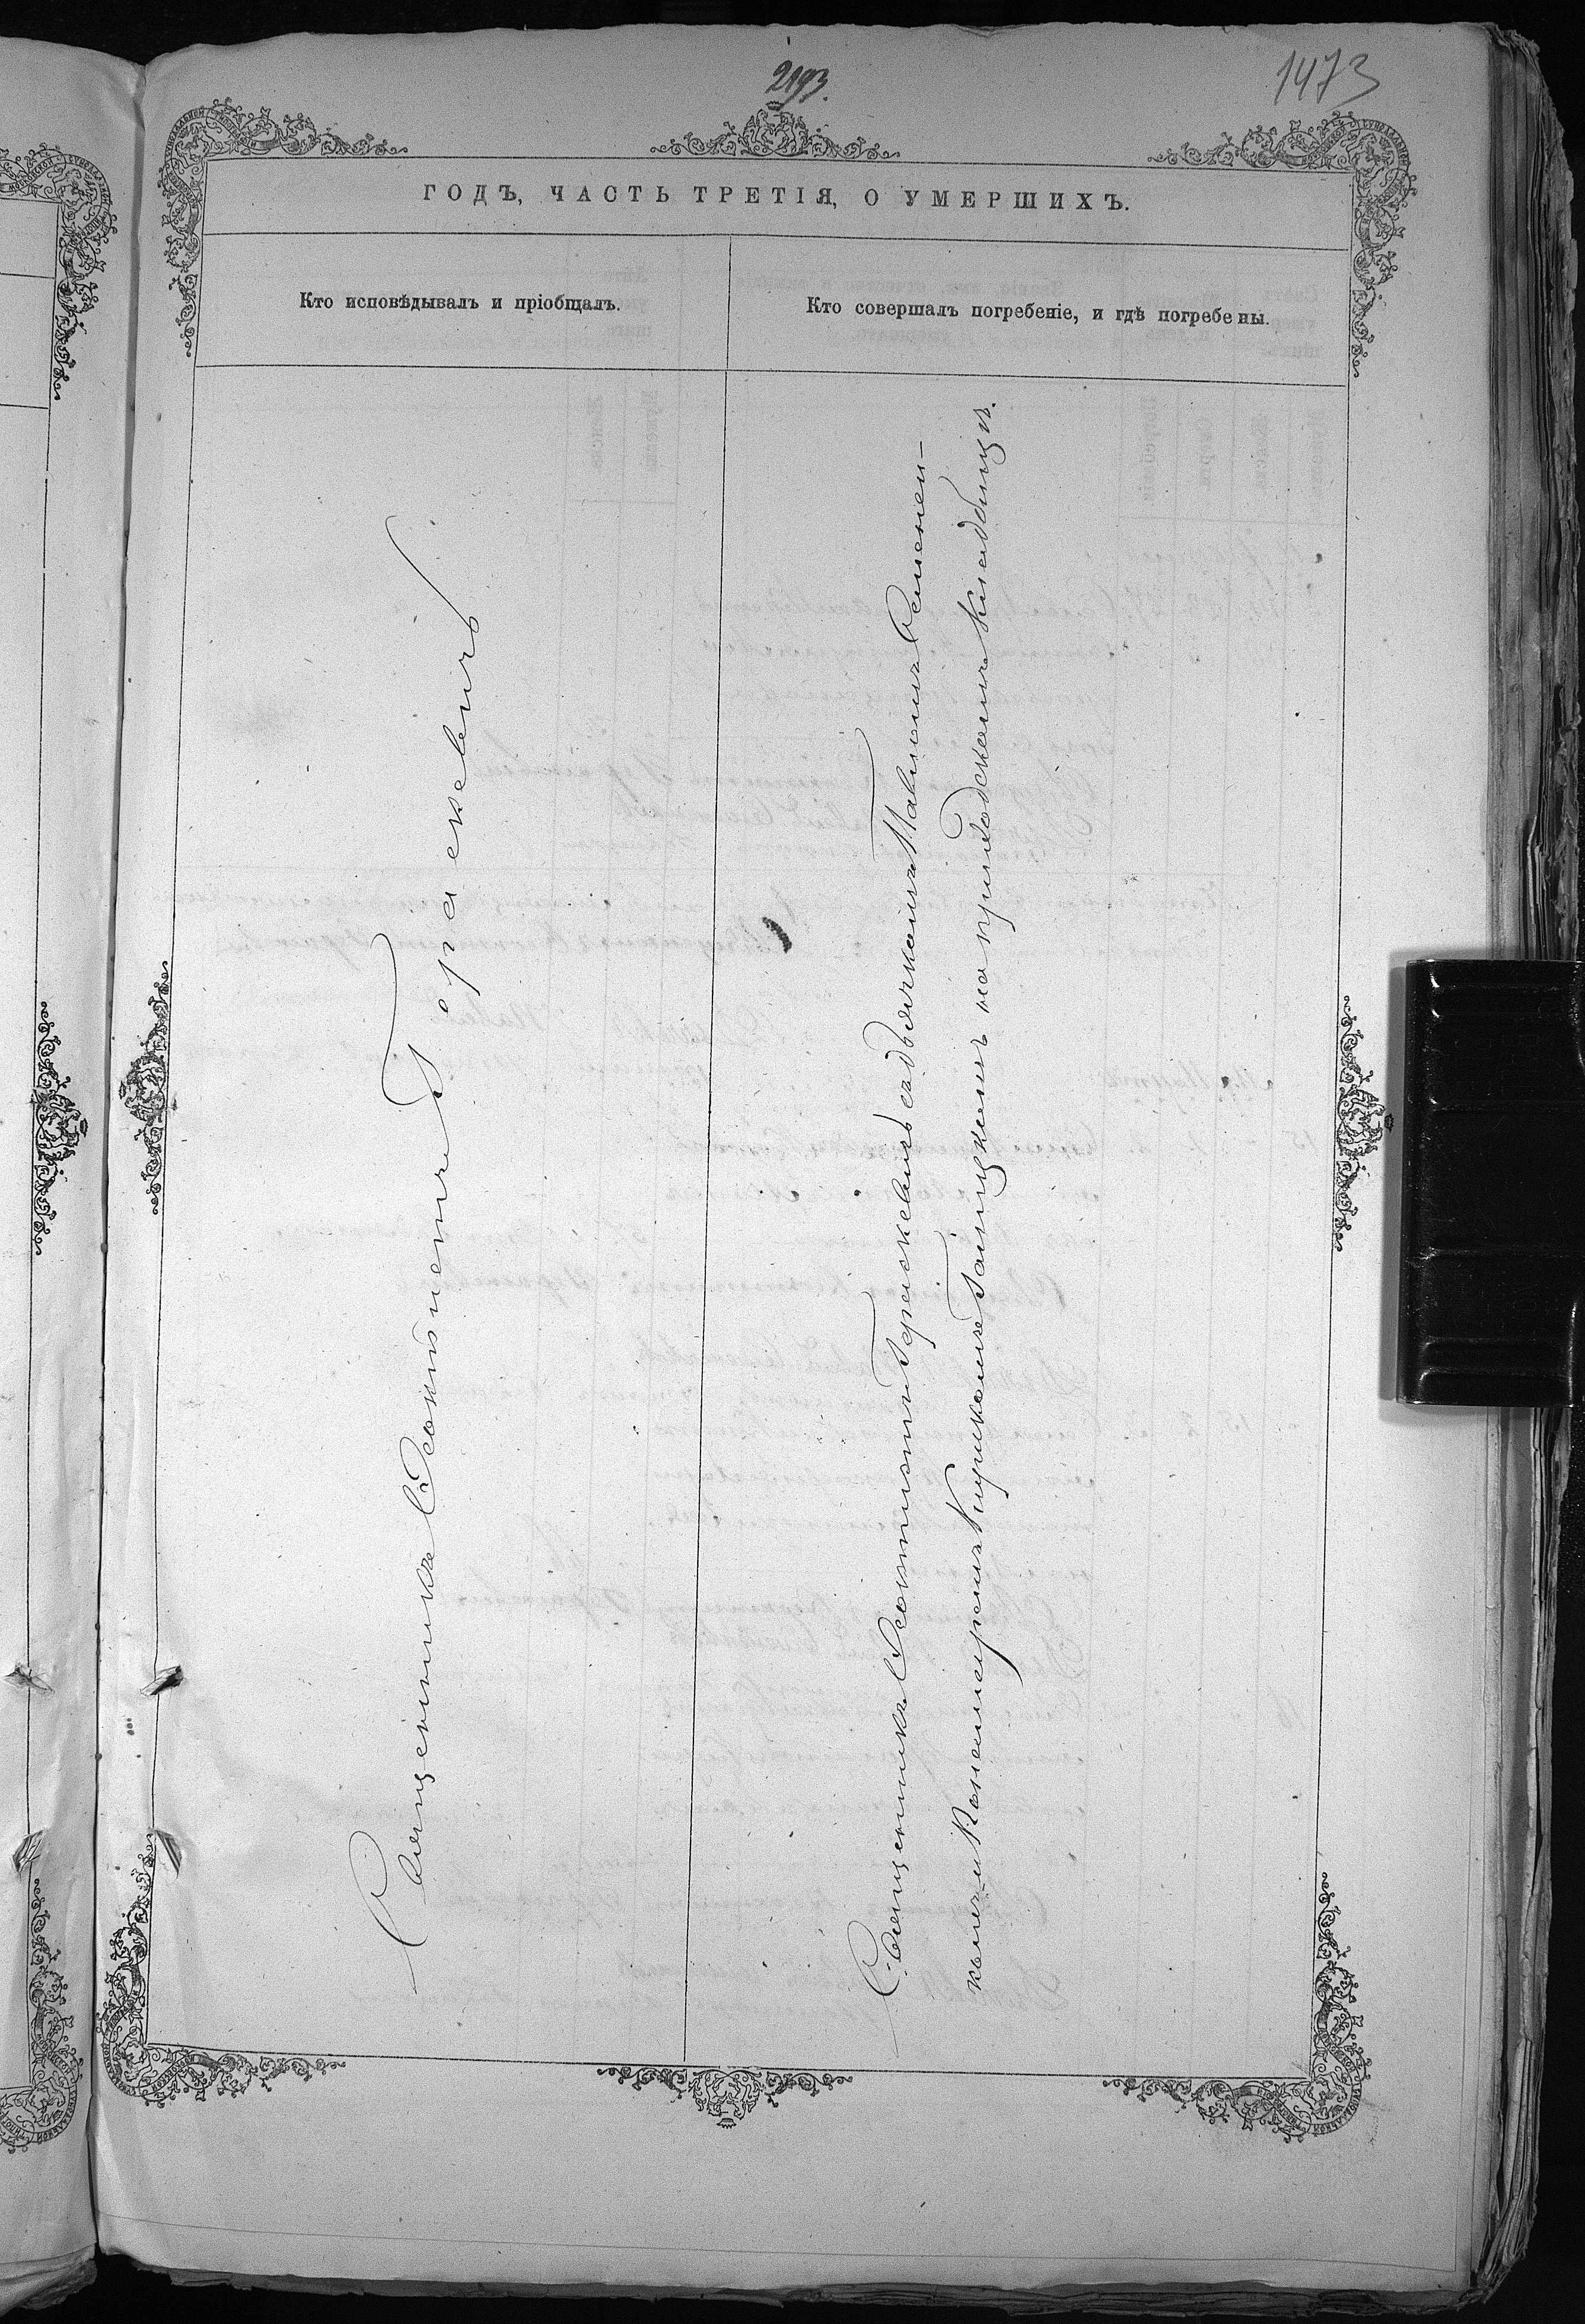 2193.
1473
ГОДЪ, ЧАСТЬ ТРЕТІЯ, О УМЕРШИХЪ.
Кто исповѣдывалъ и пріобщалъ.
Кто совершалъ погребеніе, и гдѣ погребены.
Священникъ Геракевичъ
Священникъ Геракевичъ съ дьячкомъ Павломъ Семенен-
комъ и Пономаремъ на приходскомъ кладбищѣ.